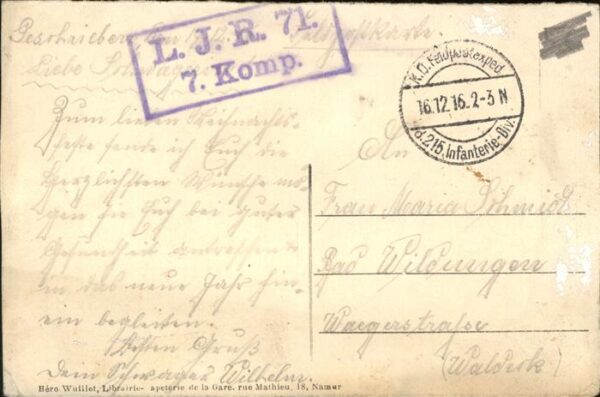 Geschrieben den
Feldpostkarte.
L. J. R. 71.
7. Komp.
Liebe
Zum lieben Weihnachts-
feste sende ich Euch die
Herzlichsten Wünsche mö-
gen sie Euch bei guter
Gesundheit antreffen &
in das neue Jahr hin-
ein begleiten.
Besten Gruß
Dem Schwager Wilhelm.
K.D. Feldpostexped.
16.12.16. 2-3 N
d. 215. Infanterie-Div.
An
Frau Maria Schmidt
Bad Wildungen
Waegerstraße
(Waldeck)
Héro Wuillot, Librairie- apeterie de la Gare, rue Mathieu, 18, Namur